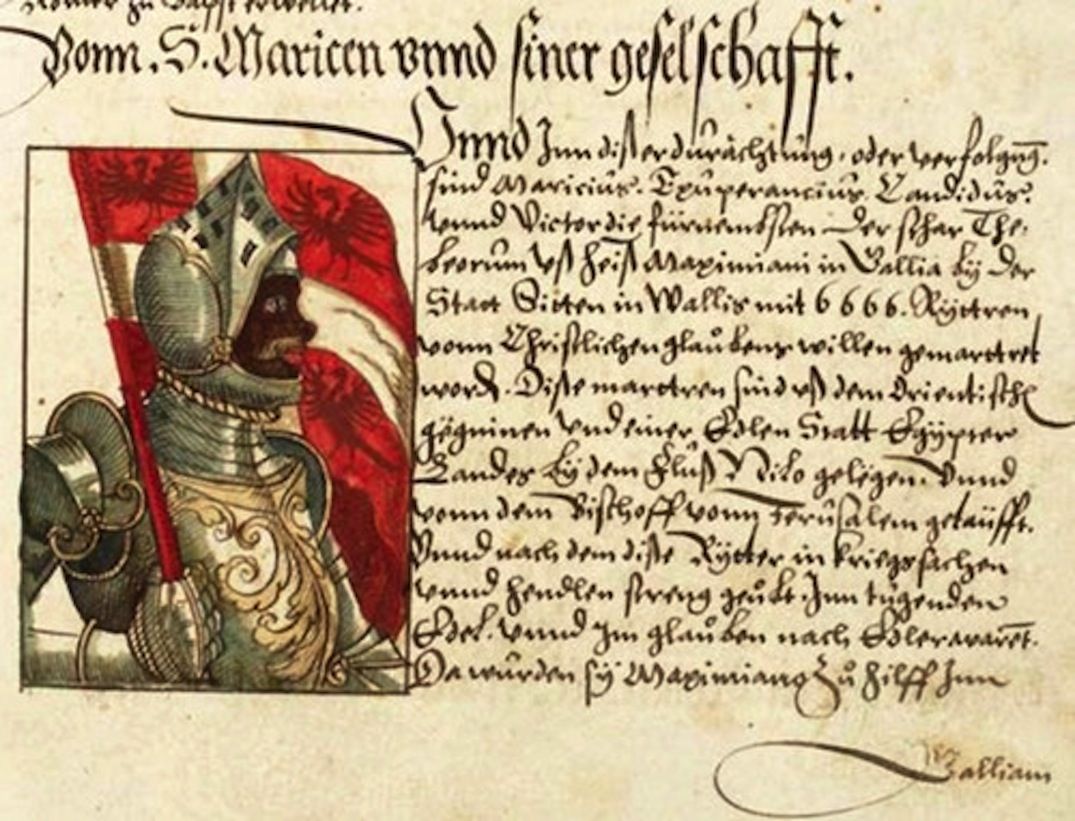 Römer zu Bapst erwellet.
Vonn. S. Maricen vnnd siner geselschafft.
Vnnd Inn diser durächtung, oder verfolgūg.
sind Maricius. Exuperancius. Candidus.
vnnd Victor die fürnembsten der schar The-
beorum vß heiß Maximiani in Gallia by der
Statt Sitten in Wallis mit 6666. Ryttren
vonn Christlichen glaubens willen gemarttret
word. Dise marttren sind vß dem Orientisch
gegninen vnd einer Edlen Statt Egypter
Landes by dem fluß Nilo gelegen. Vnnd
vonn dem Bischoff vonn Jerusalem getäufft.
Vnnd nach dem dise Rytter in kriegs sachen
vnnd hendlen streng geübt. Inn tugenden
Edel. Vnnd Im glauben nach Edler warent.
Da wurden sy Maximiano zů hilff Inn
Galliam